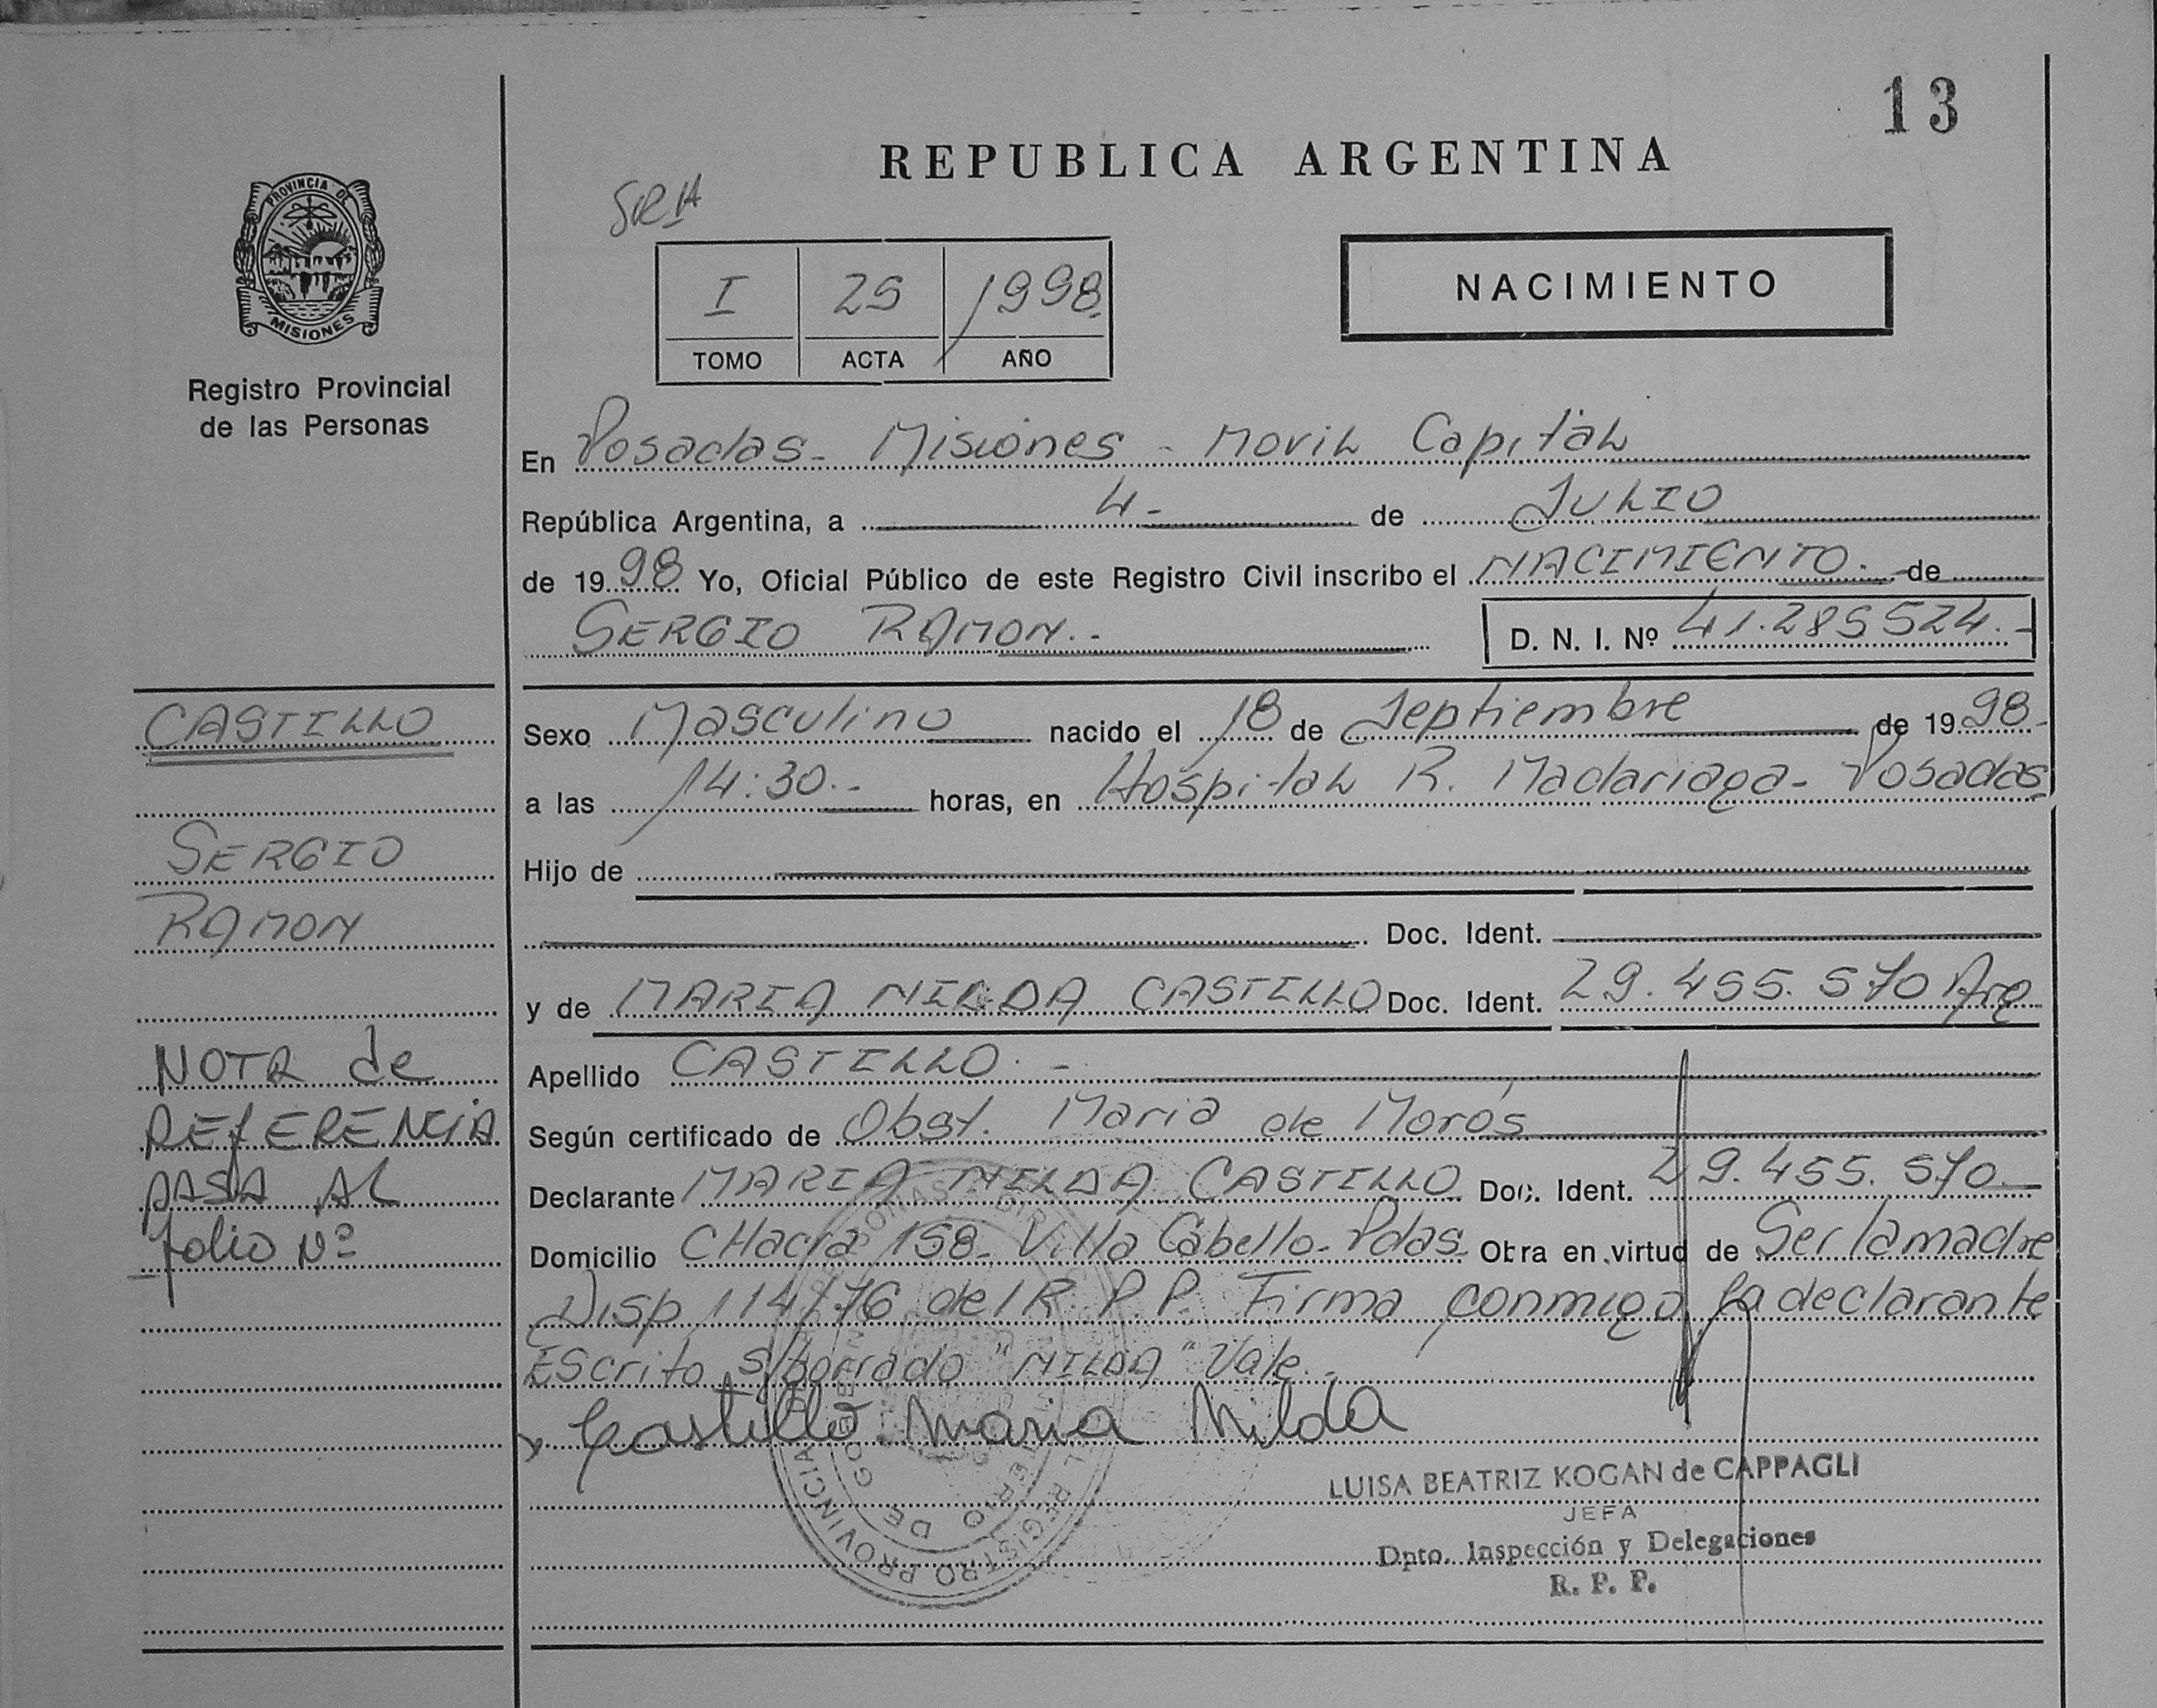 13
REPUBLICA ARGENTINA
PROVINCIA DE
MISIONES
Registro Provincial
de las Personas
I 25 1998.
TOMO ACTA AÑO
NACIMIENTO
En Posadas - Misiones - Movil Capital
República Argentina, a 4 - de JULIO
de 1998 Yo, Oficial Público de este Registro Civil inscribo el NACIMIENTO. - de
SERGIO RAMON. - D. N. I. Nº 41.285524. -
CASTILLO
Sexo Masculino nacido el 18 de Septiembre de 1998 -
a las 14:30. - horas, en Hospital R. Madariaga - Posadas
SERGIO
Hijo de
RAMON
Doc. Ident.
y de MARIA NILDA CASTILLO Doc. Ident. 29.455.570 Arg
NOTA de
Apellido CASTILLO. -
REFERENCIA
Según certificado de Obst. Maria de Moros
PASA AL
Declarante MARIA NILDA CASTILLO Doc. Ident. 29.455.570
folio Nº
Domicilio CHacra 158 - Villa Cabello - Pdas Obra en virtud de Ser la madre
Disp 114/76 del R. P. P. Firma conmigo la declarante
Escrito s/borrado "NILDA" Vale. -
x Castillo Maria Nilda
LUISA BEATRIZ KOGAN de CAPPAGLI
JEFA
Dpto. Inspección y Delegaciones
R. P. P.
REGISTRO PROVINCIAL